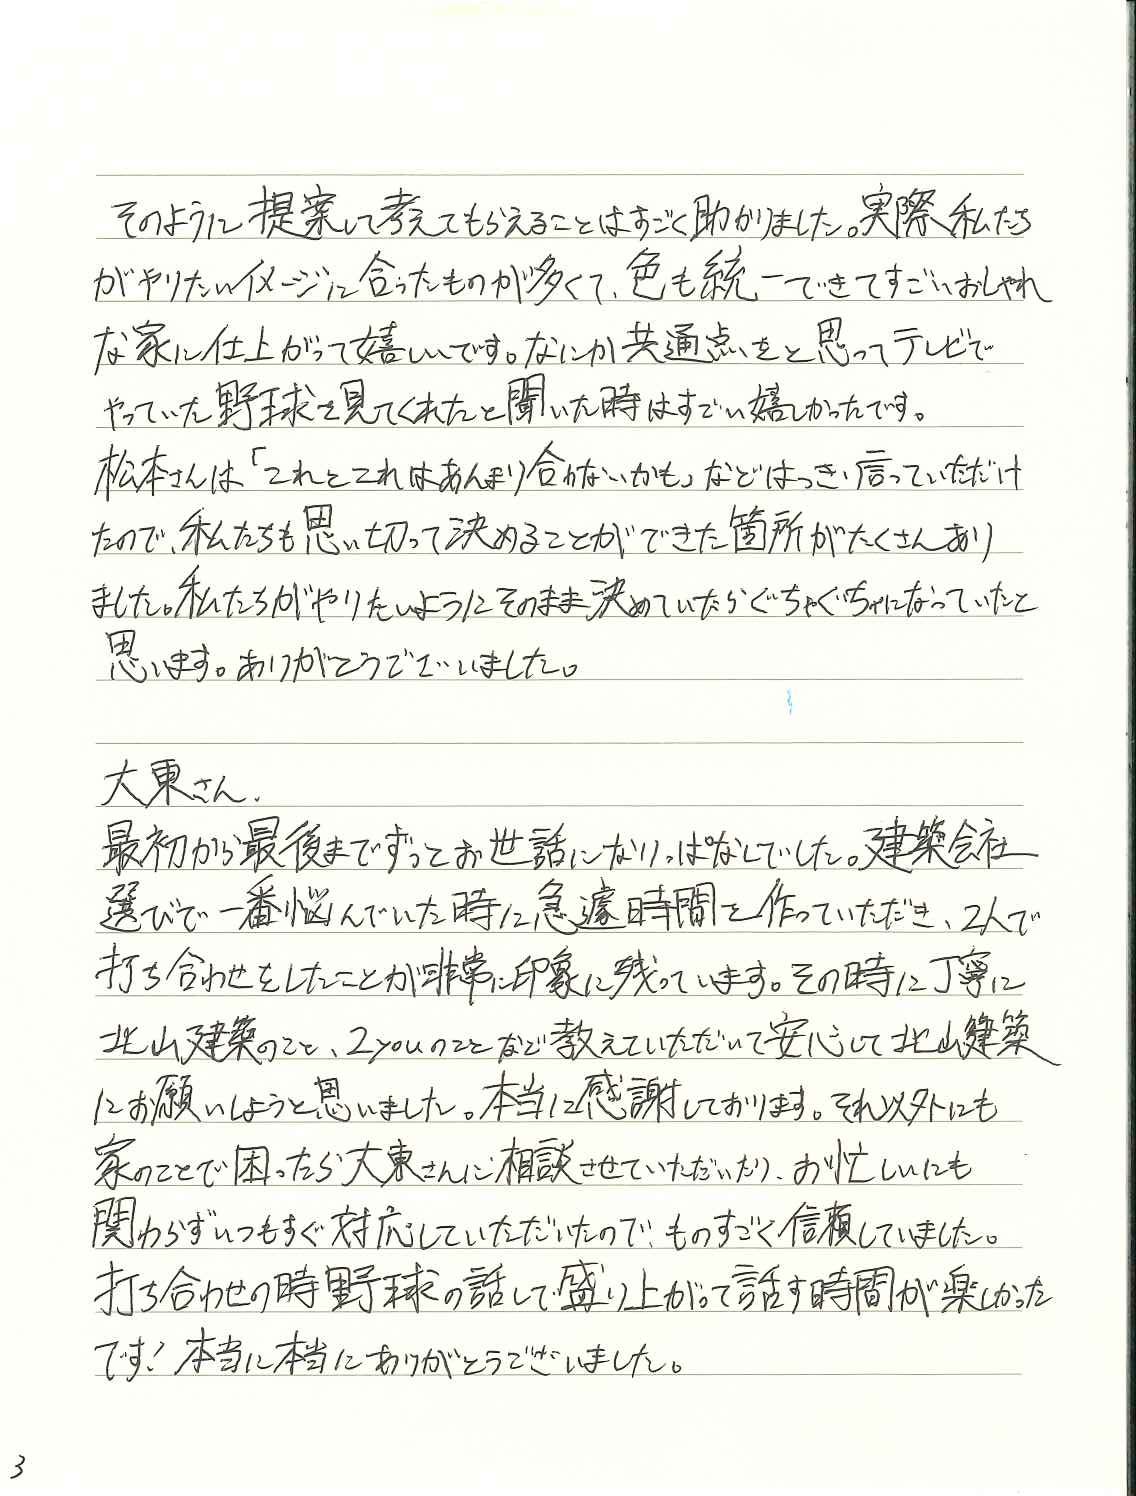 そのように提案して考えてもらえることはすごく助かりました。実際私たち
がやりたいイメージに合ったものが多くて、色も統一できてすごいおしゃれ
な家に仕上がって嬉しいです。なにか共通点をと思ってテレビで
やっていた野球を見てくれたと聞いた時はすごい嬉しかったです。
松本さんは「これとこれはあんまり合わないかも」などはっきり言っていただけ
たので、私たちも思い切って決めることができた箇所がたくさんあり
ました。私たちがやりたいようにそのまま決めていたらぐちゃぐちゃになっていたと
思います。ありがとうございました。
大東さん、
最初から最後までずっとお世話になりっぱなしでした。建築会社
選びで一番悩んでいた時に急遽時間を作っていただき、2人で
打ち合わせをしたことが非常に印象に残っています。その時に丁寧に
北山建築のこと、2youのことなど教えていただいて安心して北山建築
にお願いしようと思いました。本当に感謝しております。それ以外にも
家のことで困ったら大東さんに相談させていただいたり、お忙しいにも
関わらずいつもすぐ対応していただいたので、ものすごく信頼していました。
打ち合わせの時野球の話しで盛り上がって話す時間が楽しかった
です!本当に本当にありがとうございました。
3